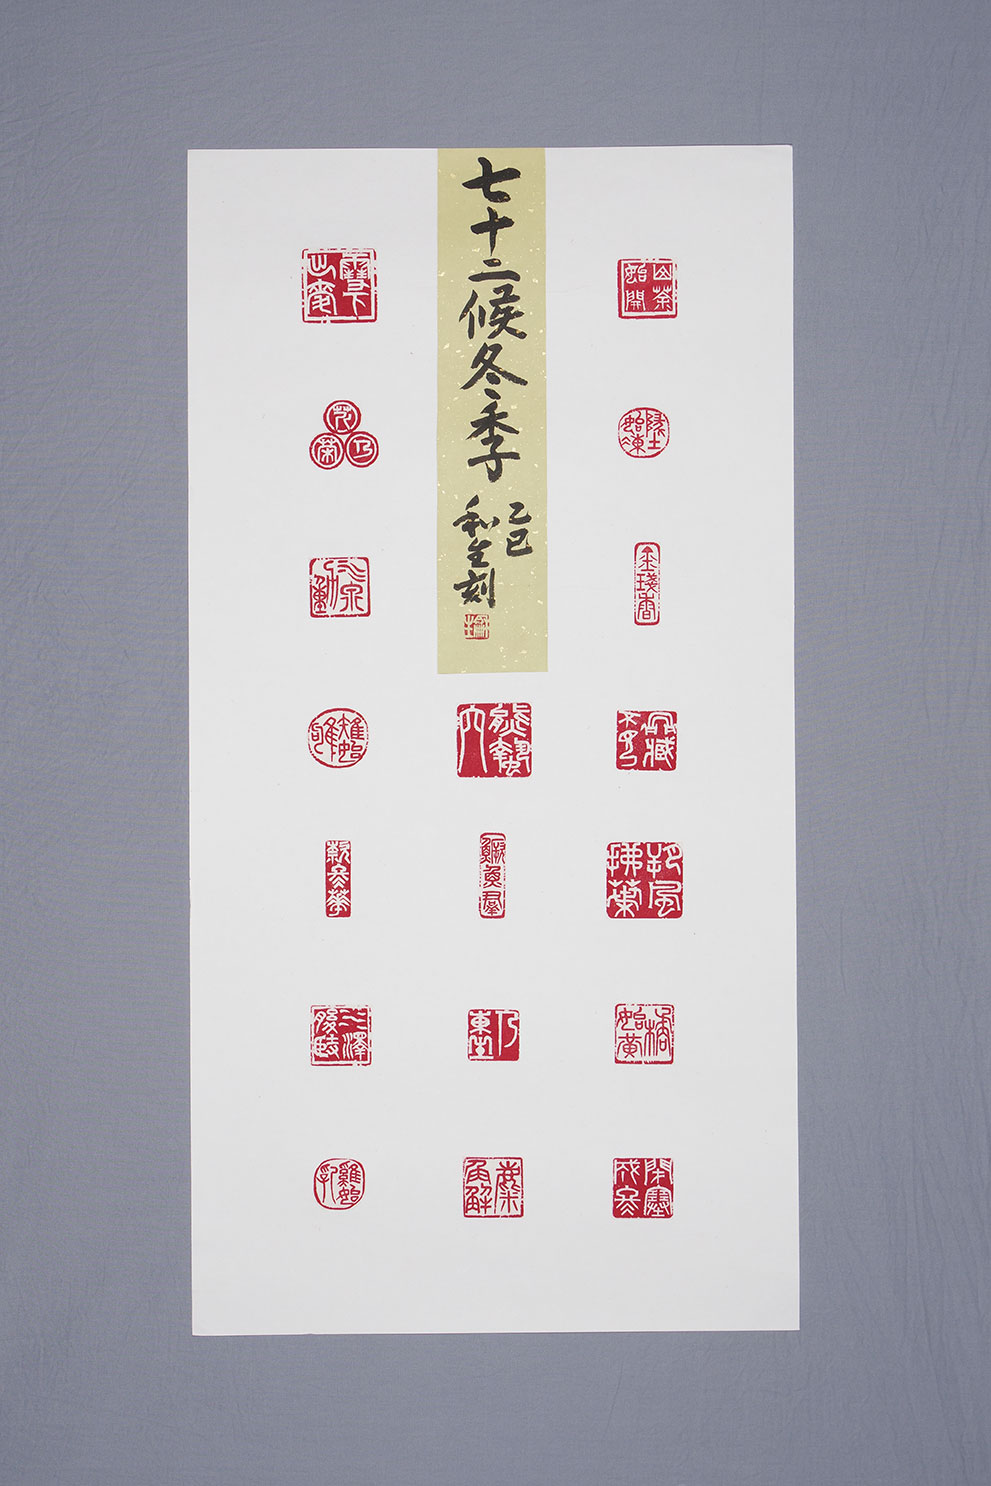 七十二候冬季
乙巳
和生刻
山茶始開
地始凍
金盞香
虹蔵不見
朔風払葉
橘始黄
閉塞成冬
熊蟄穴
鱖魚群
乃東生
麋角解
雪下出麦
芹乃栄
水泉動
雉始雊
款冬華
水沢腹堅
雞始乳